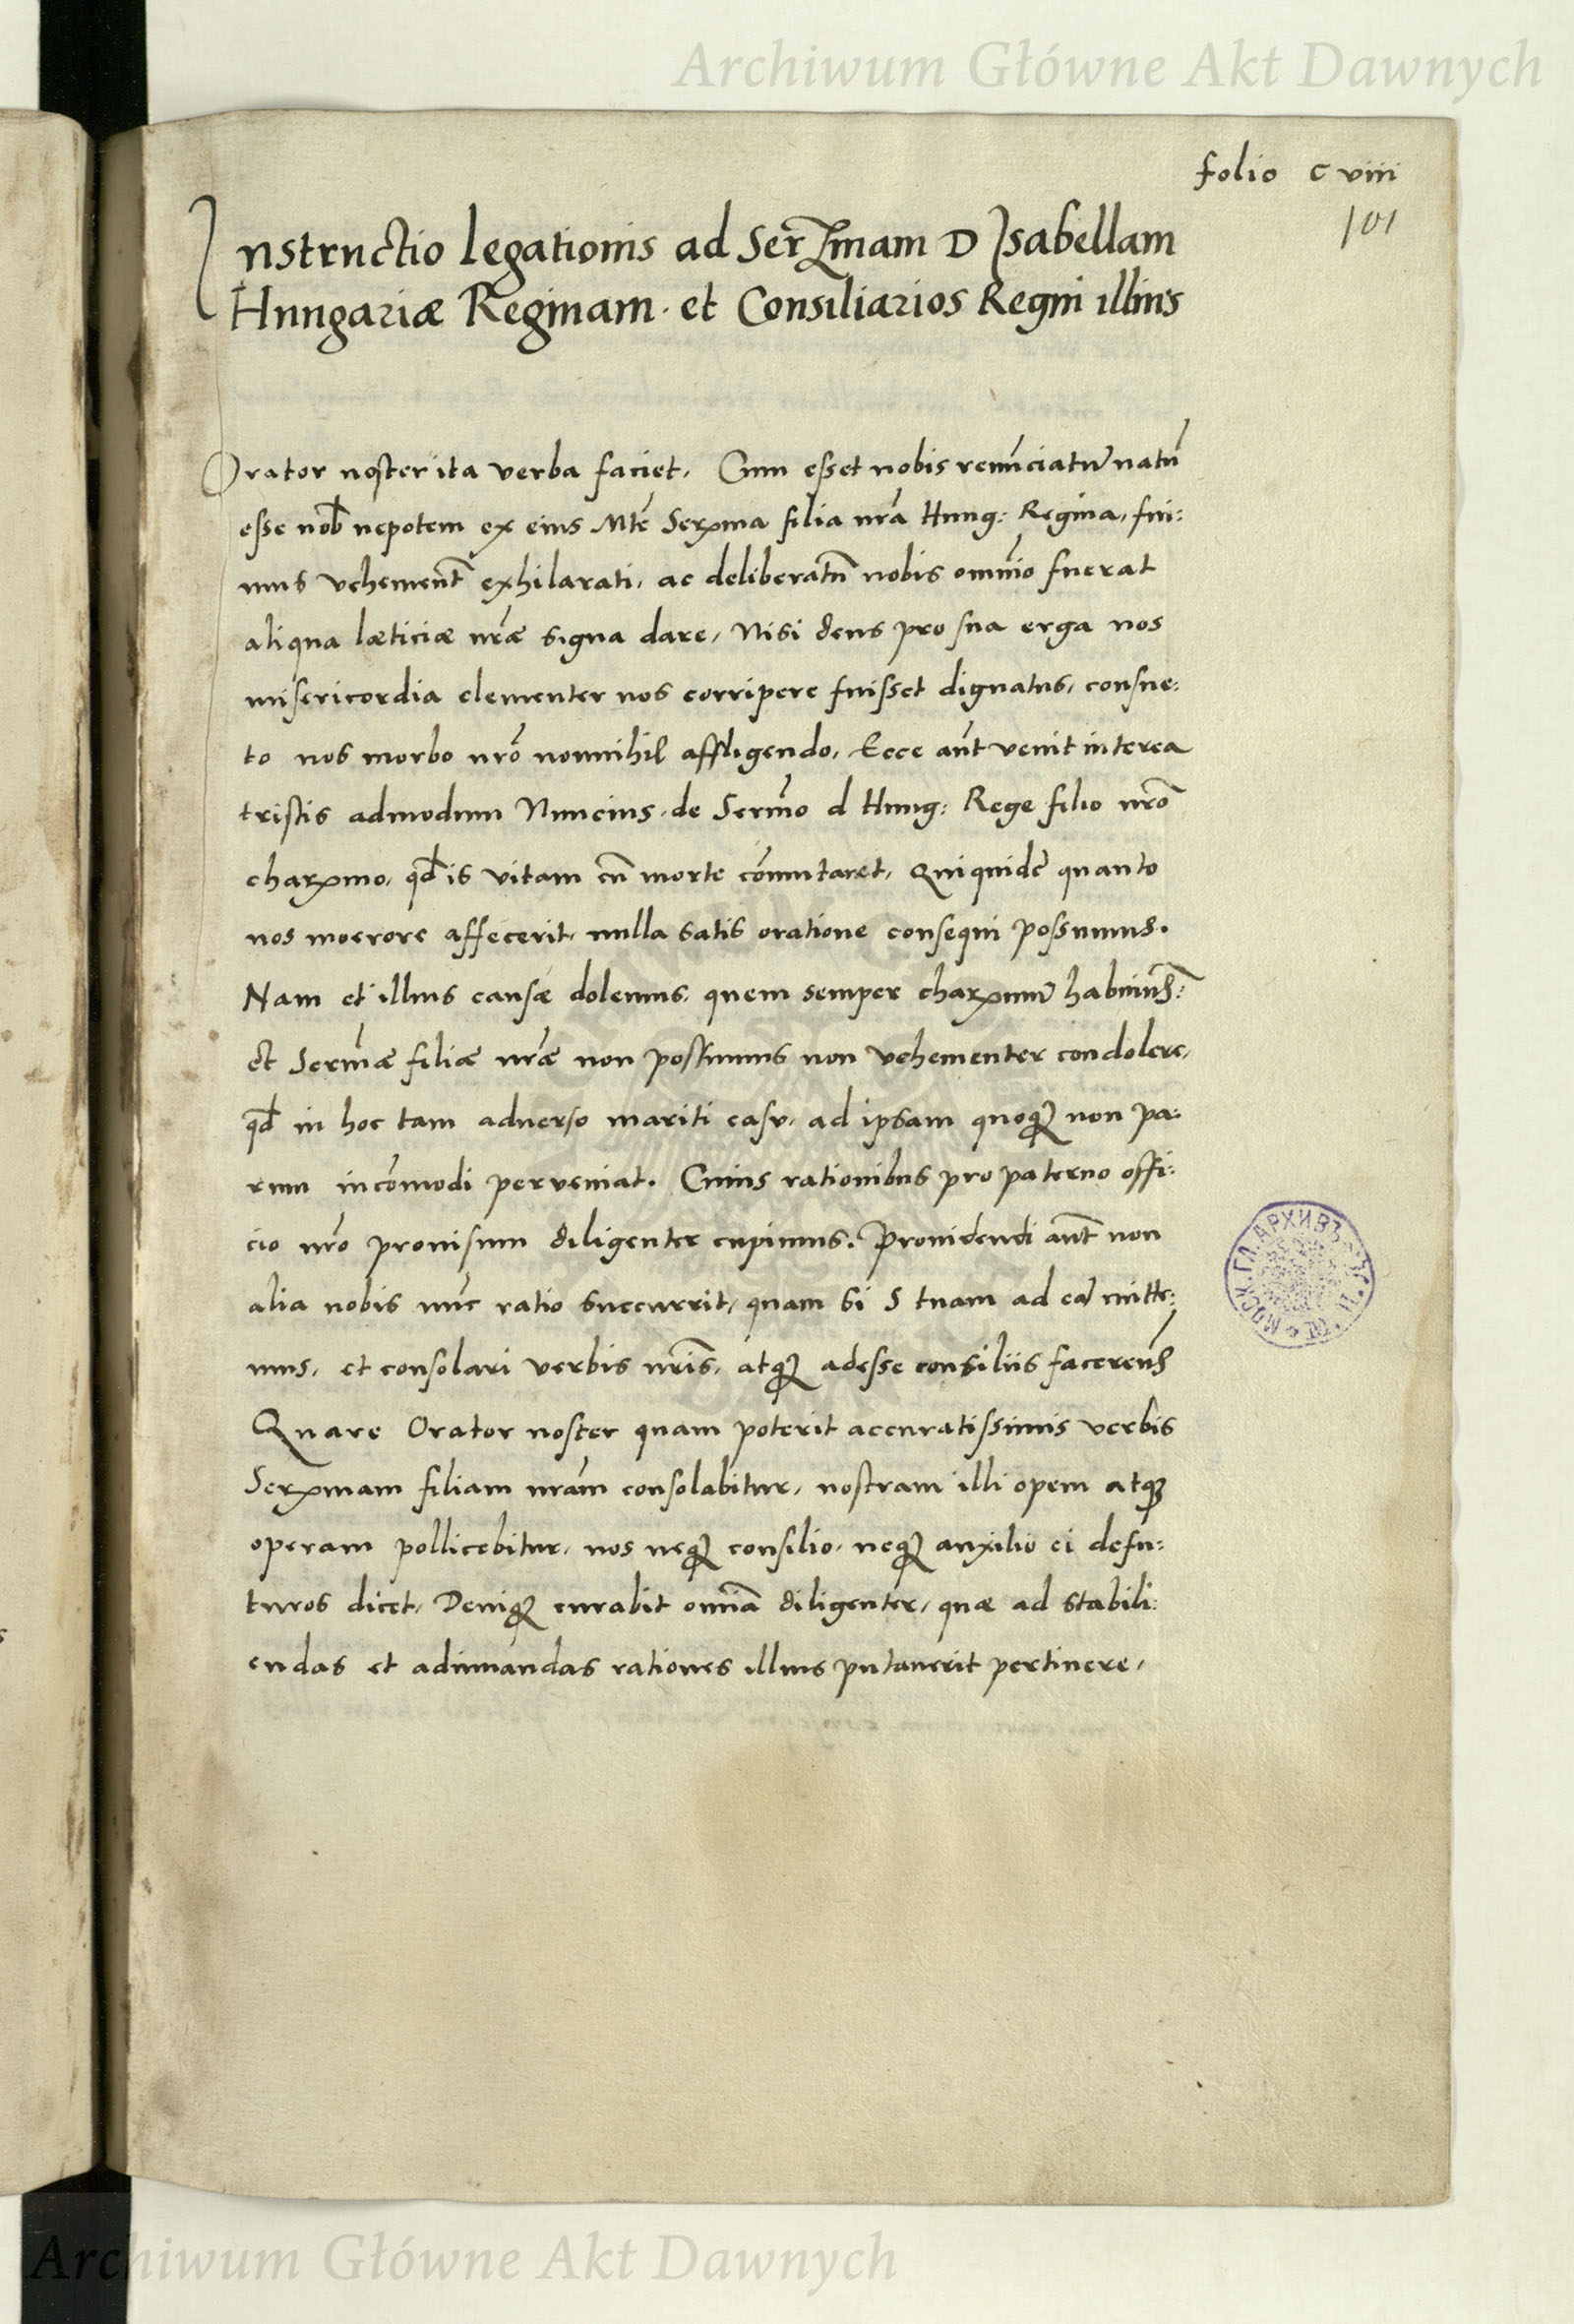 Archiwum Główne Akt Dawnych
folio cviii
101
Instructio legationis ad Serẽmam D Isabellam
Hungariæ Reginam. et Consiliarios Regni illius
Orator noster ita verba faciet, Cum esset nobis renũciatũ natũ
esse nob nepotem ex eius Mte Serma filia nrã Hung: Regina, fui:
mus vehement̃ exhilarati, ac deliberatũ nobis omnĩo fuerat
aliqua læticiæ nrẽæ signa dare, Nisi deus pro sua erga nos
misericordia clementer nos corripere fuisset dignatus, consue:
to nos morbo nrõ nonnihil affligendo, Ecce aũt venit interea
tristis admodum Nuncius, de Sermõ d Hung: Rege filio nrõ
charmo, qd is vitam cũ morte cõmutaret, Qui quidẽ quanto
nos moerore affecerit, nulla satis oratione consequi possumus.
Nam et illius causæ dolemus, quem semper charmũ habuimꝰ:
et Sermæ filiæ nrẽæ non possumus non vehementer condolere,
qd in hoc tam aduerso mariti casu, ad ipsam quoqꝫ non pa:
rum incõmodi perveniat. Cuius rationibus pro paterno offi:
cio nrõ prouisum diligenter cupimus. Prouidendi aũt non
alia nobis nũc ratio succurrit, quam si S tuam ad eã mitte:
mus, et consolari verbis nrĩs, atqꝫ adesse consiliis faceremꝰ
Quare Orator noster quam poterit accuratissimis verbis
Sermam filiam nrãm consolabitur, nostram illi opem atqꝫ
operam pollicebitur, nos neqꝫ consilio, neqꝫ auxilio ei defu:
turos dicet, Deniqꝫ curabit omñia diligenter, quæ ad stabili:
endas et adiuuandas rationes illius putauerit pertinere,
Archiwum Główne Akt Dawnych